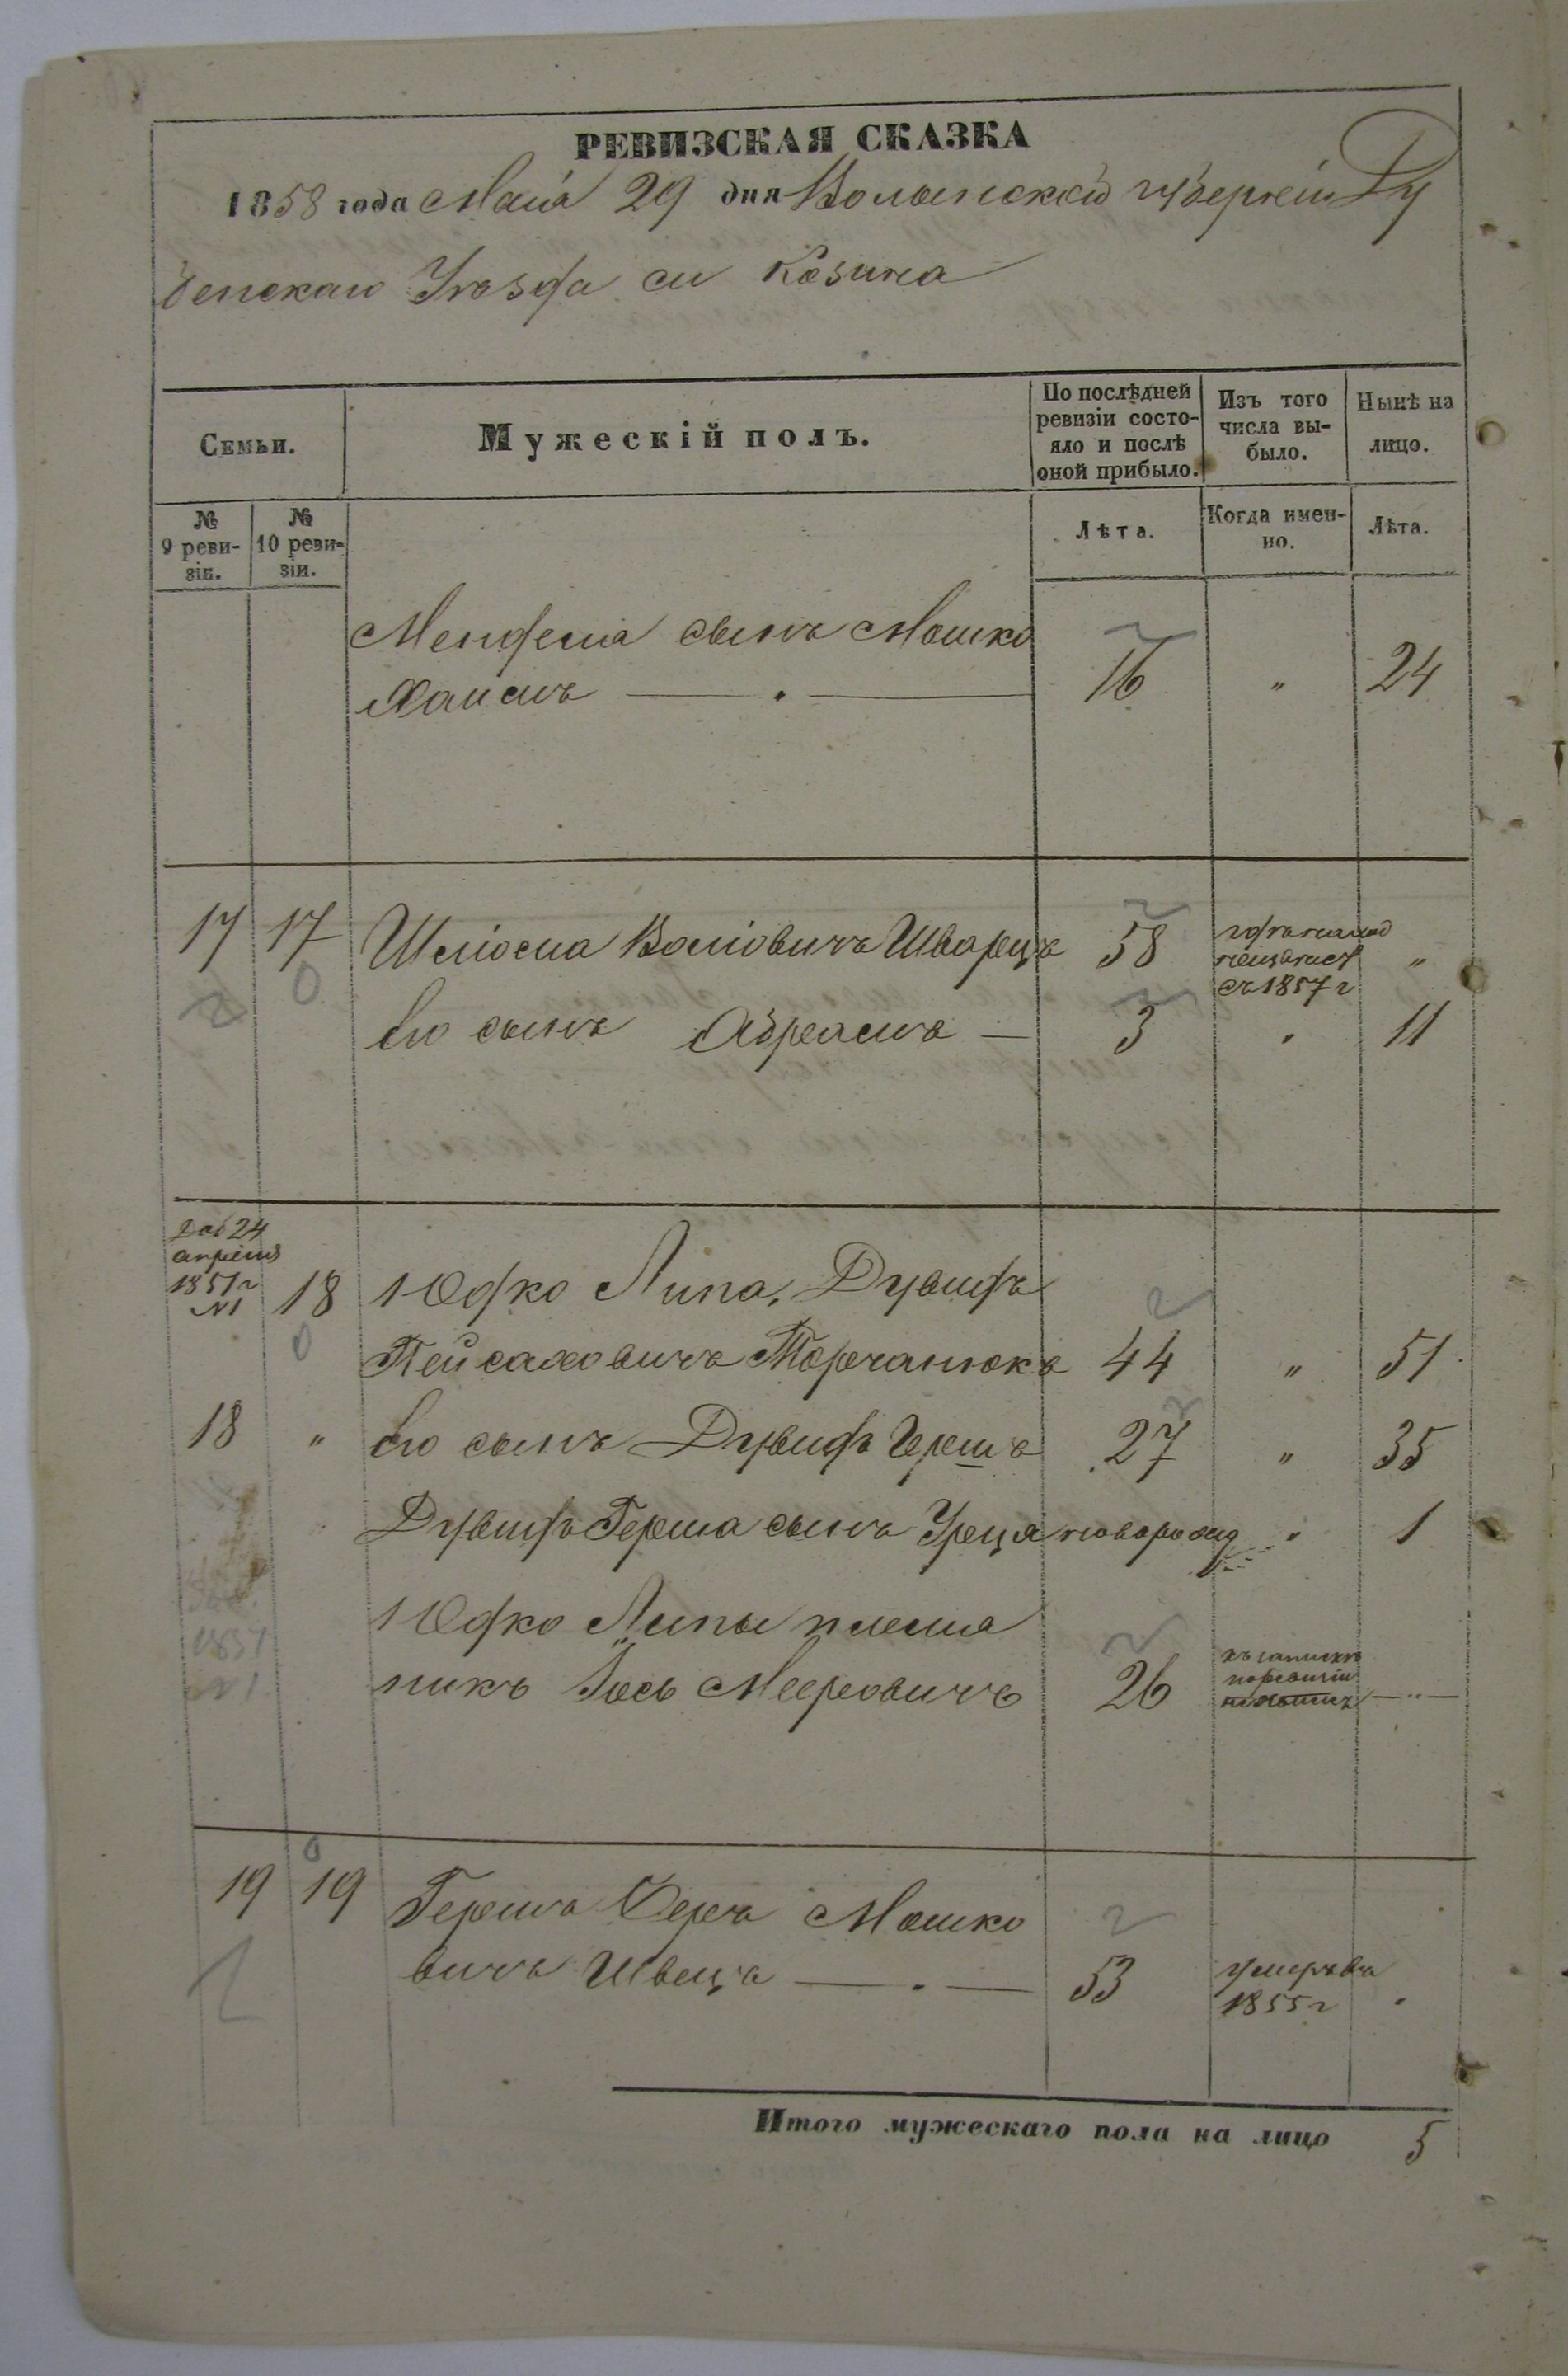 РЕВИЗСКАЯ СКАЗКА
1858 года Маiя 29 дня Волынской губернiи Ду
бенскаго Уезда м Козина
Семьи.
Мужескiй полъ.
По послѣдней
ревизiи состо-
яло и послѣ
оной прибыло.
Изъ того
числа вы-
было.
Нынѣ на
лицо.
№
9 реви-
зiи.
№
10 реви-
зiи.
Лѣта.
Когда имен-
но.
Лѣта.
Менделя сынъ Мошко
Хаимъ — 16 " 24
17 17 Шлiома Волiовичъ Шварцъ 58 "
съ 1857 г
Его сынъ Абрамъ — 3 " 11
24
апреля
1851 г
№1 18 Юдко Липа, Дувидъ
Пейсаховичъ Торчанюкъ 44 " 51
18 " Его сынъ Дувидъ Гершъ 27 " 35
Дувидъ Герша сынъ Уреця новорожд " 1
Юдко Липы племя
никъ Iось Мееровичъ 26 — " —
19 19 Гершъ Беръ Мошко
вичъ Швецъ — 53 умеръ въ
1855 г "
Итого мужескаго пола на лицо 5